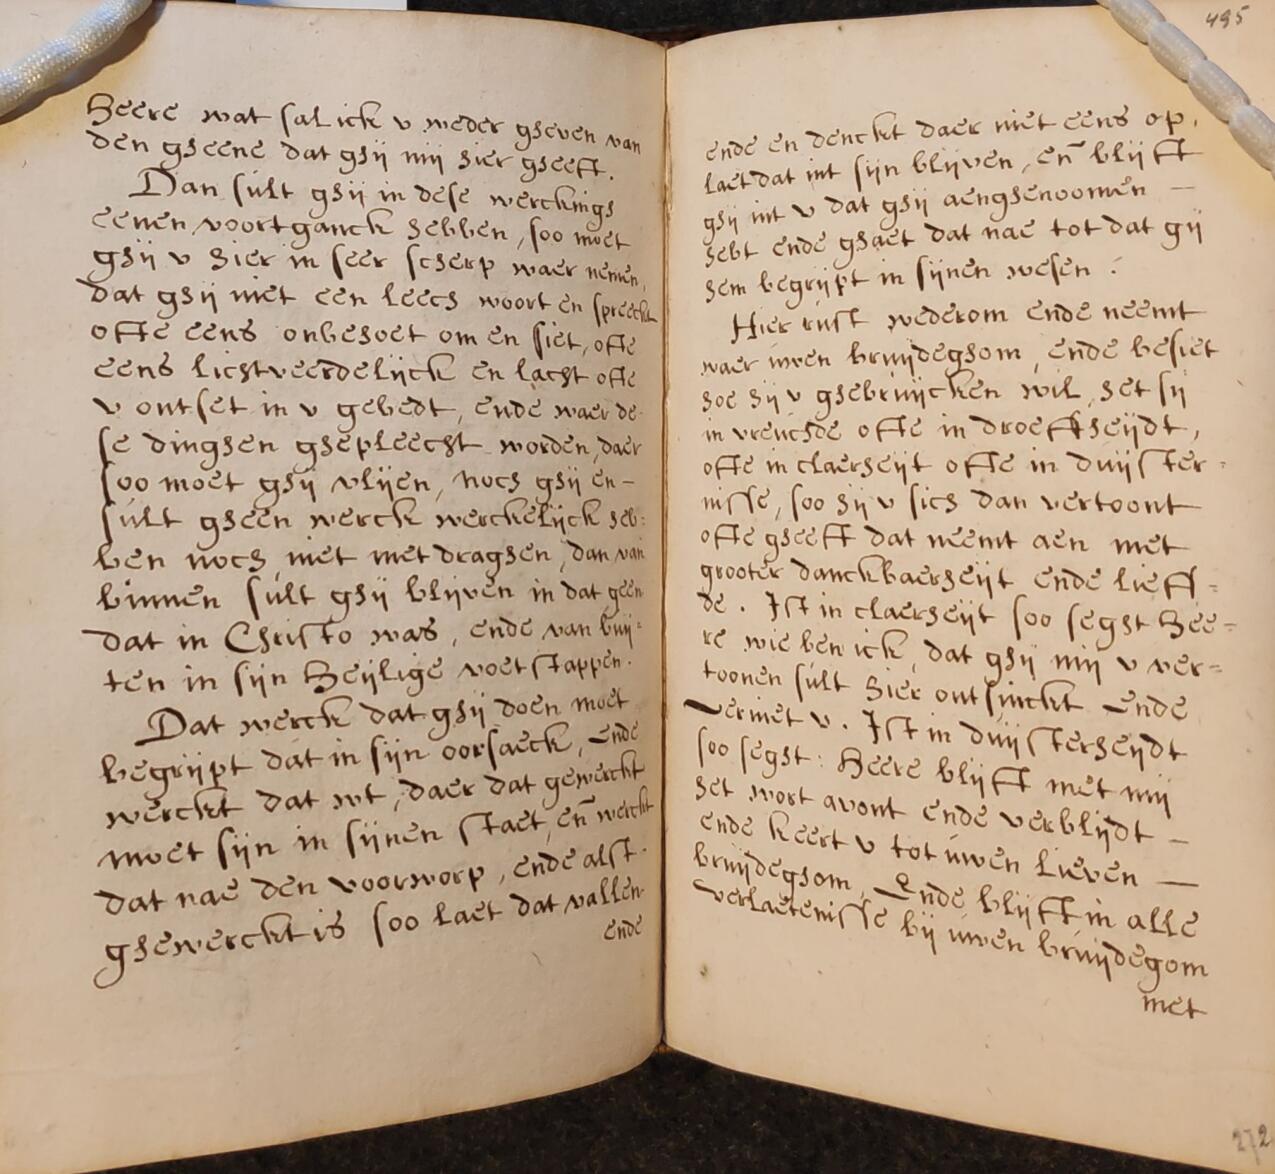 Heere wat sal ick v weder gheven van
den gheene dat ghij mij hier gheeft.
Dan sult ghij in dese werckings
eenen voortganck hebben, soo moet
ghij v hier in seer scherp waer nemen,
dat ghij niet een leech woort en spreeckt
ofte eens onbehoet om en siet, ofte
eens lichtveerdelijck en lacht ofte
v ontset in v gebedt, ende waer de-
se dinghen ghepleecht worden, daer
soo moet ghij vlijen, noch ghij en-
sult gheen werck werckelijck heb:
ben noch niet met draghen, dan van
binnen sult ghij blijven in dat geen
dat in Christo was, ende van buij=
ten in sijn Heijlige voetstappen.
Dat werck dat ghij doen moet
begrijpt dat in sijn oorsaeck, Ende
werckt dat wt, daer dat gewerckt
moet sijn in sijnen staet, en̄ werckt
dat nae den voorworp, ende alst.
ghewerckt is soo laet dat vallen
ende
495
ende en denckt daer niet eens op,
laet dat int sijn blijven, en̄ blijft
ghij int v dat ghij aenghenoomen —
hebt ende ghaet dat nae tot dat gij
hem begrijpt in sijnen wesen.
Hier rust wederom ende neemt
waer uwen bruijdeghom, ende besiet
hoe hij v ghebruijcken wil, het sij
in vreuchde ofte in droeffheijdt,
ofte in claerheijt ofte in duijster-
nisse, soo hij v sich dan vertoont
ofte gheeft dat neemt aen met
grooter danckbaerheijt ende lieff=
de. Ist in claerheijt soo seght Hee=
re wie ben ick, dat ghij mij v ver=
toonen sult hier ontsinckt Ende
verniet v. Ist in duijsterheijdt
soo seght: Heere blijft met mij
het wort avont ende verblijdt —
ende keert v tot uwen lieven —
bruijdeghom, Ende blijft in alle
verlaetenisse bij uwen bruijdegom
met
272